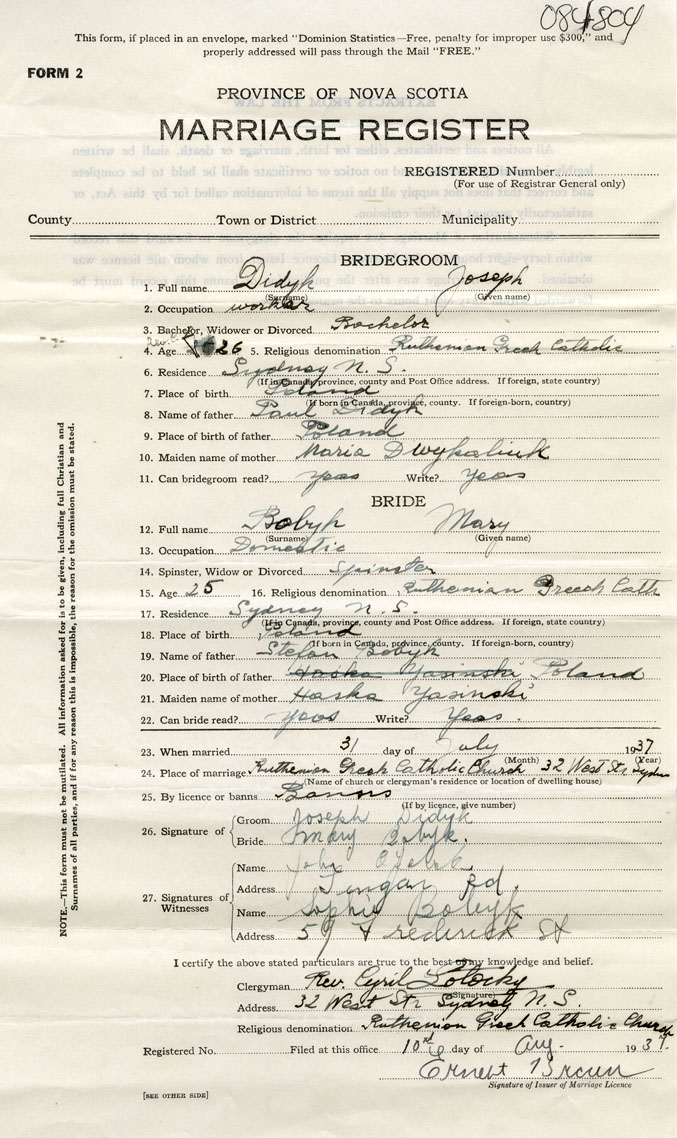 084804
This form, if placed in an envelope, marked "Dominion Statistics—Free, penalty for improper use $300," and
properly addressed will pass through the Mail "FREE."
FORM 2
PROVINCE OF NOVA SCOTIA
MARRIAGE REGISTER
REGISTERED Number
(For use of Registrar General only)
County Town or District Municipality
BRIDEGROOM
1. Full name Didyk Joseph
(Surname) (Given name)
2. Occupation worker
3. Bachelor, Widower or Divorced Bachelor
4. Age 26 5. Religious denomination Ruthenian Greek Catholic
6. Residence Sydney N. S.
(If in Canada, province, county and Post Office address. If foreign, state country)
7. Place of birth Poland
(If born in Canada, province, county. If foreign-born, country)
8. Name of father Paul Didyk
9. Place of birth of father Poland
10. Maiden name of mother Maria Dwykaliuk
11. Can bridegroom read? yeas Write? yeas
BRIDE
12. Full name Bobyk Mary
(Surname) (Given name)
13. Occupation Domestic
14. Spinster, Widow or Divorced Spinster
15. Age 25 16. Religious denomination Ruthenian Greech Cath
17. Residence Sydney N. S.
(If in Canada, province, county and Post Office address. If foreign, state country)
18. Place of birth Poland
(If born in Canada, province, county. If foreign-born, country)
19. Name of father Stefan Bobyk
20. Place of birth of father Haska Yasinski Poland
21. Maiden name of mother Haska Yasinski
22. Can bride read? Yeas Write? Yeas.
23. When married 31 day of July 1937
(Month) (Year)
24. Place of marriage Ruthenian Greek Catholic Church 32 West Str. Sydney
(Name of church or clergyman's residence or location of dwelling house)
25. By licence or banns Banns
(If by licence, give number)
26. Signature of
Groom Joseph Didyk
Bride Mary Bobyk.
27. Signatures of Witnesses
Name John
Address Tingar Rd.
Name Sophie Bobyk
Address 59 Frederick St
I certify the above stated particulars are true to the best of my knowledge and belief.
Clergyman Rev. Cyril Lotocky
(Signature)
Address 32 West Str Sydney N. S.
Religious denomination Ruthenian Greek Catholic Church
Registered No. Filed at this office 10 day of Aug. 1937.
Ernest Brown
Signature of Issuer of Marriage Licence
[SEE OTHER SIDE]
NOTE.—This form must not be mutilated. All information asked for is to be given, including full Christian and
Surnames of all parties, and if for any reason this is impossible, the reason for the omission must be stated.